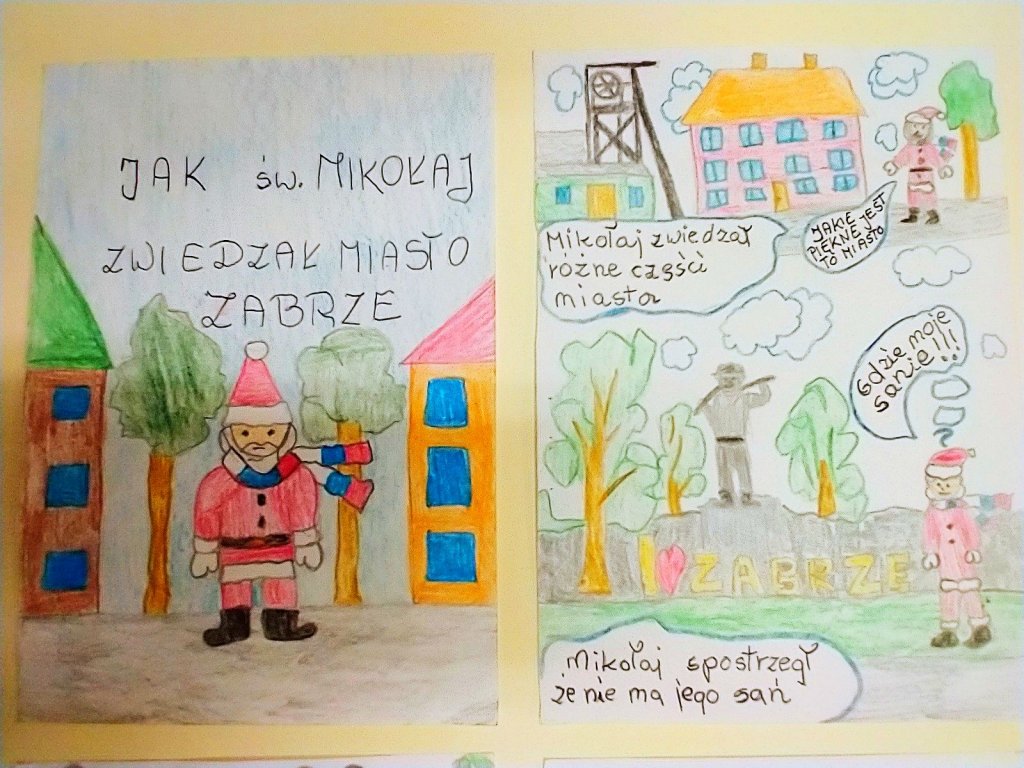 JAK św. MIKOŁAJ
ZWIEDZAŁ MIASTO
ZABRZE
Mikołaj zwiedzał
różne części
miasta
JAKIE
PIĘKNE JEST
TO MIASTO
Gdzie moje
sanie!!!
I ZABRZE
Mikołaj spostrzegł
że nie ma jego sań